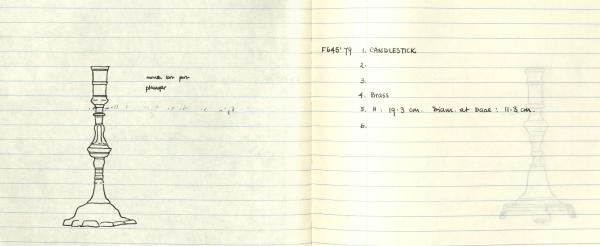 plunger
F645'79 1. CANDLESTICK
2.
3.
4. Brass
5. H: 19.3 cm. Diam. at base: 11.8 cm.
6.